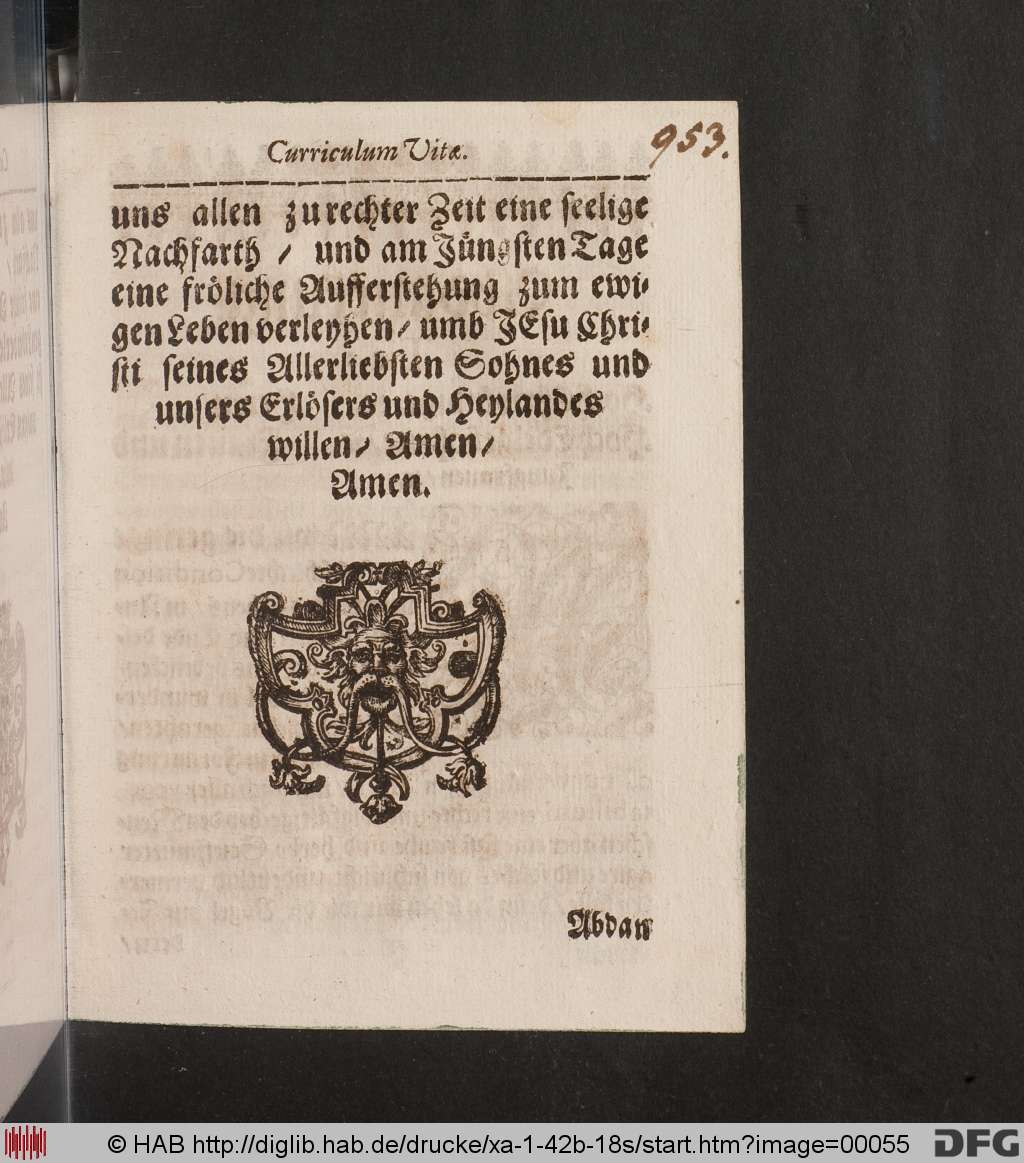 Curriculum Vitæ.
953.
uns allen zu rechter Zeit eine seelige
Nachfarth / und am Jüngsten Tage
eine fröliche Aufferstehung zum ewi-
gen Leben verleyhen / umb JEsu Chri-
sti seines Allerliebsten Sohnes und
unsers Erlösers und Heylandes
willen / Amen /
Amen.
Abdan
© HAB http://diglib.hab.de/drucke/xa-1-42b-18s/start.htm?image=00055
DFG